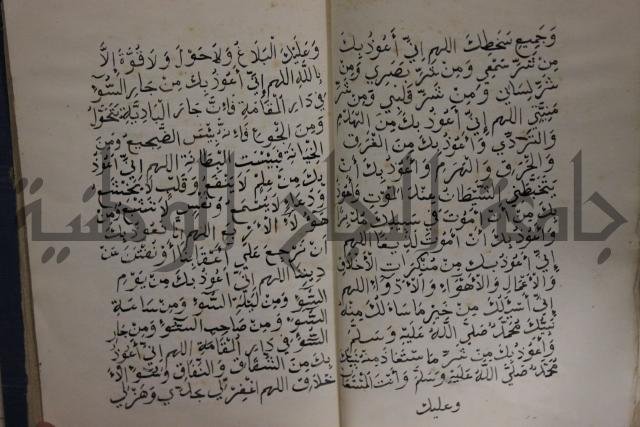 وَجَمِيعِ سَخَطِكَ اللهم إِنِّي أَعُوذُ بِكَ
مِنْ شَرِّ سَمْعِي وَمِنْ شَرِّ بَصَرِي وَمِنْ
شَرِّ لِسَانِي وَمِنْ شَرِّ قَلْبِي وَمِنْ شَرِّ
مَنِيِّي اللهم إِنِّي أَعُوذُ بِكَ مِنَ الْهَدْمِ
وَالتَّرَدِّي وَأَعُوذُ بِكَ مِنَ الْغَرَقِ
وَالْحَرَقِ وَالْهَرَمِ وَأَعُوذُ بِكَ أَنْ
يَتَخَبَّطَنِي الشَّيْطَانُ عِنْدَ الْمَوْتِ وَأَعُوذُ
بِكَ مِنْ أَنْ أَمُوتَ فِي سَبِيلِكَ مُدْبِرًا
وَأَعُوذُ بِكَ أَنْ أَمُوتَ لَدِيغًا اللهم
إِنِّي أَعُوذُ بِكَ مِنْ مُنْكَرَاتِ الْأَخْلَاقِ
وَالْأَعْمَالِ وَالْأَهْوَاءِ وَالْأَدْوَاءِ اللهم
إِنِّي أَسْأَلُكَ مِنْ خَيْرِ مَا سَأَلَكَ مِنْهُ
نَبِيُّكَ مُحَمَّدٌ صَلَّى اللهُ عَلَيْهِ وَسَلَّمَ
وَأَعُوذُ بِكَ مِنْ شَرِّ مَا اسْتَعَاذَ مِنْهُ نَبِيُّكَ
مُحَمَّدٌ صَلَّى اللهُ عَلَيْهِ وَسَلَّمَ وَأَنْتَ الْمُسْتَعَانُ
وعليك
وَعَلَيْكَ الْبَلَاغُ وَلَا حَوْلَ وَلَا قُوَّةَ إِلَّا
بِاللهِ اللهم إِنِّي أَعُوذُ بِكَ مِنْ جَارِ السُّوءِ
فِي دَارِ الْمُقَامَةِ فَإِنَّ جَارَ الْبَادِيَةِ يَتَحَوَّلُ
وَمِنَ الْجُوعِ فَإِنَّهُ بِئْسَ الضَّجِيعُ وَمِنَ
الْخِيَانَةِ فَبِئْسَتِ الْبِطَانَةُ اللهم إِنِّي أَعُوذُ
بِكَ مِنْ عِلْمٍ لَا يَنْفَعُ وَقَلْبٍ لَا يَخْشَعُ
وَدُعَاءٍ لَا يُسْمَعُ وَنَفْسٍ لَا تَشْبَعُ وَمِنْ
هَؤُلَاءِ الْأَرْبَعِ اللهم إِنَّا نَعُوذُ بِكَ
أَنْ نَرْجِعَ عَلَى أَعْقَابِنَا أَوْ نُفْتَنَ عَنْ
دِينِنَا اللهم إِنِّي أَعُوذُ بِكَ مِنْ يَوْمِ
السُّوءِ وَمِنْ لَيْلَةِ السُّوءِ وَمِنْ سَاعَةِ
السُّوءِ وَمِنْ صَاحِبِ السُّوءِ وَمِنْ جَارِ
السُّوءِ فِي دَارِ الْمُقَامَةِ اللهم إِنِّي أَعُوذُ
بِكَ مِنَ الشِّقَاقِ وَالنِّفَاقِ وَسُوءِ الْأَ
خْلَاقِ اللهم اغْفِرْ لِي جِدِّي وَهَزْلِي
جامعة النجاح الوطنية